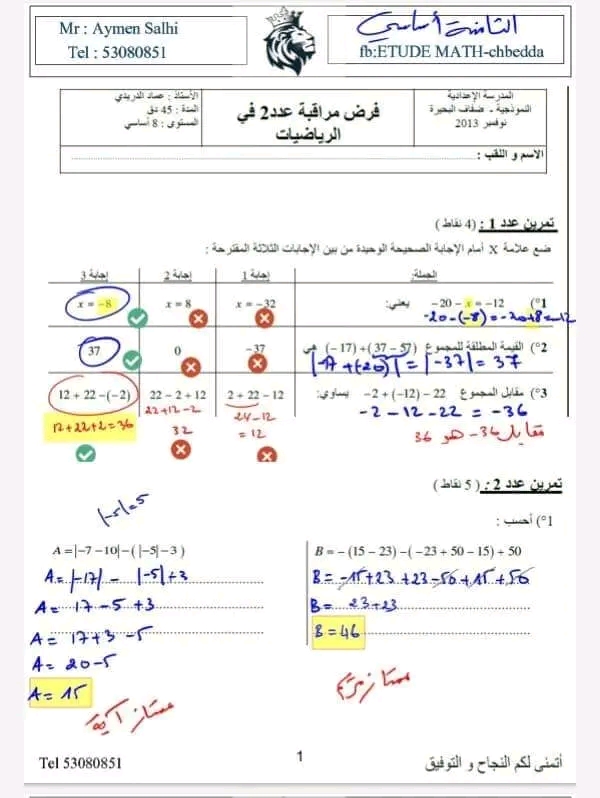 Mr : Aymen Salhi
Tel : 53080851
الثامنة أساسي
fb:ETUDE MATH-chbedda
المدرسة الإعدادية
النموذجية - ضفاف البحيرة
نوفمبر 2013
فرض مراقبة عدد2 في
الرياضيات
الأستاذ : عماد الدريدي
المدة : 45 دق
المستوى : 8 أساسي
الاسم و اللقب :
تمرين عدد 1 : (4 نقاط)
ضع علامة X أمام الإجابة الصحيحة الوحيدة من بين الإجابات الثلاثة المقترحة :
الجملة: إجابة 1 إجابة 2 إجابة 3
1°) −20 − x = −12 يعني: x = −32 x = 8 x = −8
-20-(-8) = -20+8 = -12
2°) القيمة المطلقة للمجموع (−17) + (37 − 57) هي −37 0 37
|-17+(-20)| = |-37| = 37
3°) مقابل المجموع −2 + (−12) − 22 يساوي: 2 + 22 − 12 22 − 2 + 12 12 + 22 − (−2)
-2-12-22 = -36
24-12
= 12
22+12-2
32
12+22+2=36
مقابل -36 هو 36
تمرين عدد 2 : (5 نقاط)
1°) أحسب :
|-5|=5
A = |−7 − 10| − (|−5| − 3)
A = |-17| - |-5|+3
A = 17-5+3
A = 17+3-5
A = 20-5
A = 15
ممتاز آية
B = − (15 − 23) − (−23 + 50 − 15) + 50
B = -15+23+23-50+15+50
B = 23+23
B = 46
ممتاز مريم
Tel 53080851
1
أتمنى لكم النجاح و التوفيق